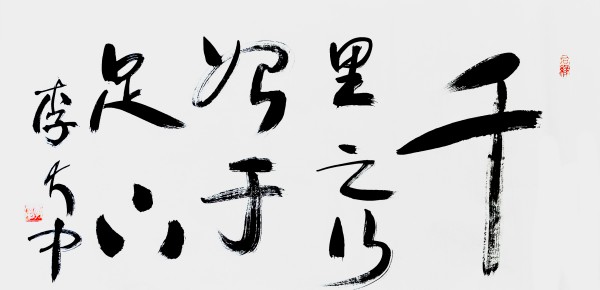 千
里之行
始于
足下
李大中